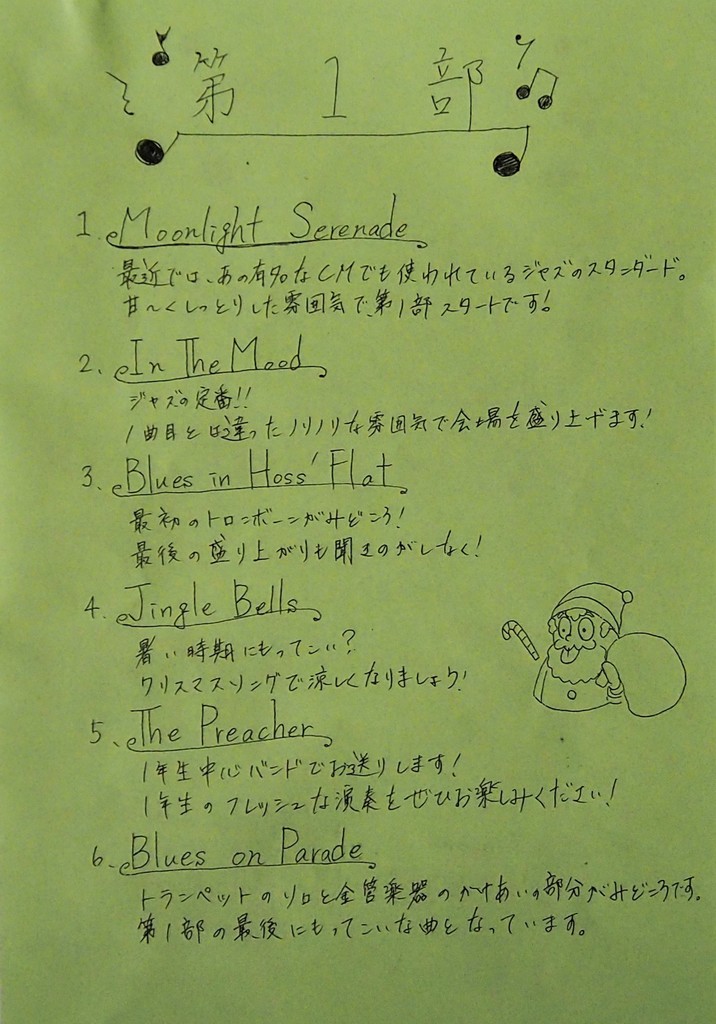 第1部
1. Moonlight Serenade
最近では、あの有名なCMでも使われているジャズのスタンダード。
甘～くしっとりした雰囲気で、第1部スタートです!
2. In The Mood
ジャズの定番!!
1曲目とは違ったノリノリな雰囲気で会場を盛り上げます!
3. Blues in Hoss' Flat
最初のトロンボーンがみどころ!
最後の盛り上がりも聞きのがしなく!
4. Jingle Bells
暑い時期にもってこい?
クリスマスソングで涼しくなりましょう!
5. The Preacher
1年生中心バンドでお送りします!
1年生のフレッシュな演奏をぜひお楽しみください!
6. Blues on Parade
トランペットのソロと金管楽器のかけあいの部分がみどころです。
第1部の最後にもってこいな曲となっています。